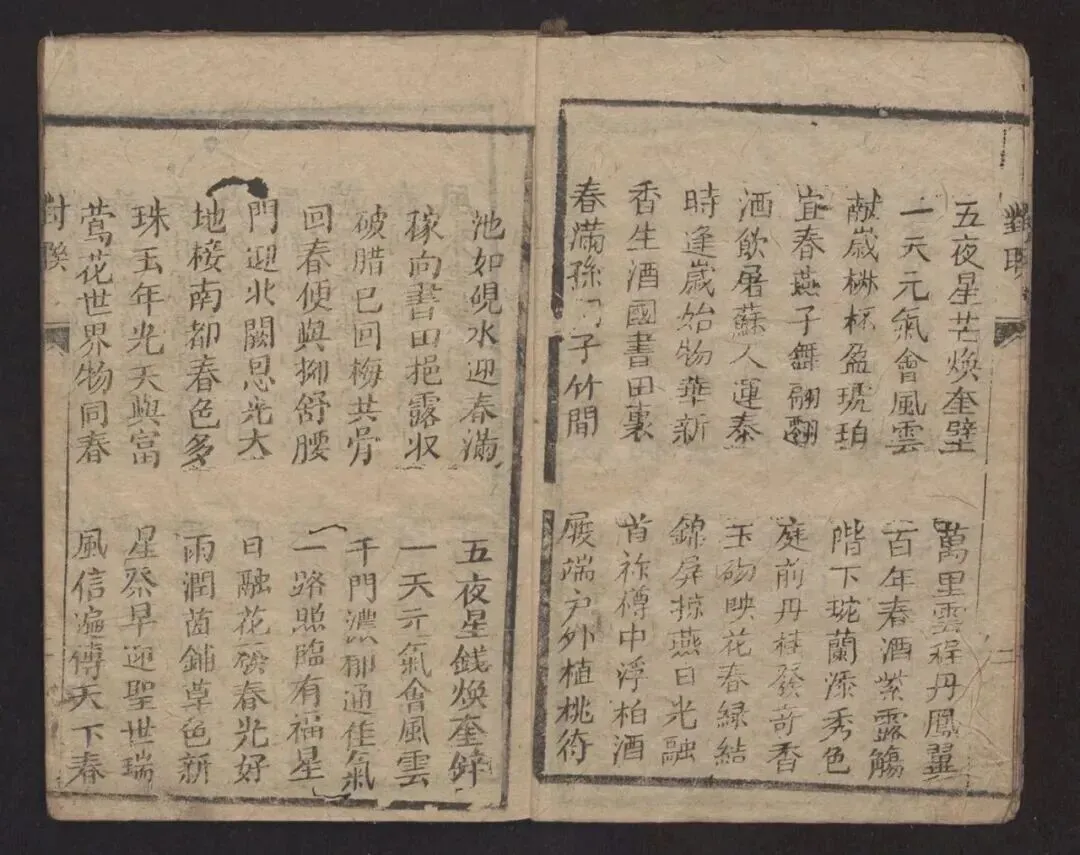 對聯
二
五夜星芒煥奎壁
一天元氣會風雲
献歲椒杯盈琥珀
宜春燕子舞翩翻
酒飲屠蘇人運泰
時逢歲始物華新
香生酒國書田裏
春滿孫子竹間
萬里雲程丹鳳翼
百年春酒紫露觴
階下琬蘭添秀色
庭前丹桂發奇香
玉砌映花春緑結
錦屏掠燕日光融
首祚樽中浮柏酒
履端户外植桃符
池如硯水迎春滿
稼向書田挹露収
破腊已回梅共骨
回春便與柳舒腰
門迎北闕恩光大
地接南都春色多
珠玉年光天與富
鶯花世界物同春
五夜星錢煥奎
一天元氣會風雲
千門濃郁通佳氣
一路照臨有福星
日融花磚春光好
雨潤茵鋪草色新
星祭早迎聖世瑞
風信遍傳天下春
対聯